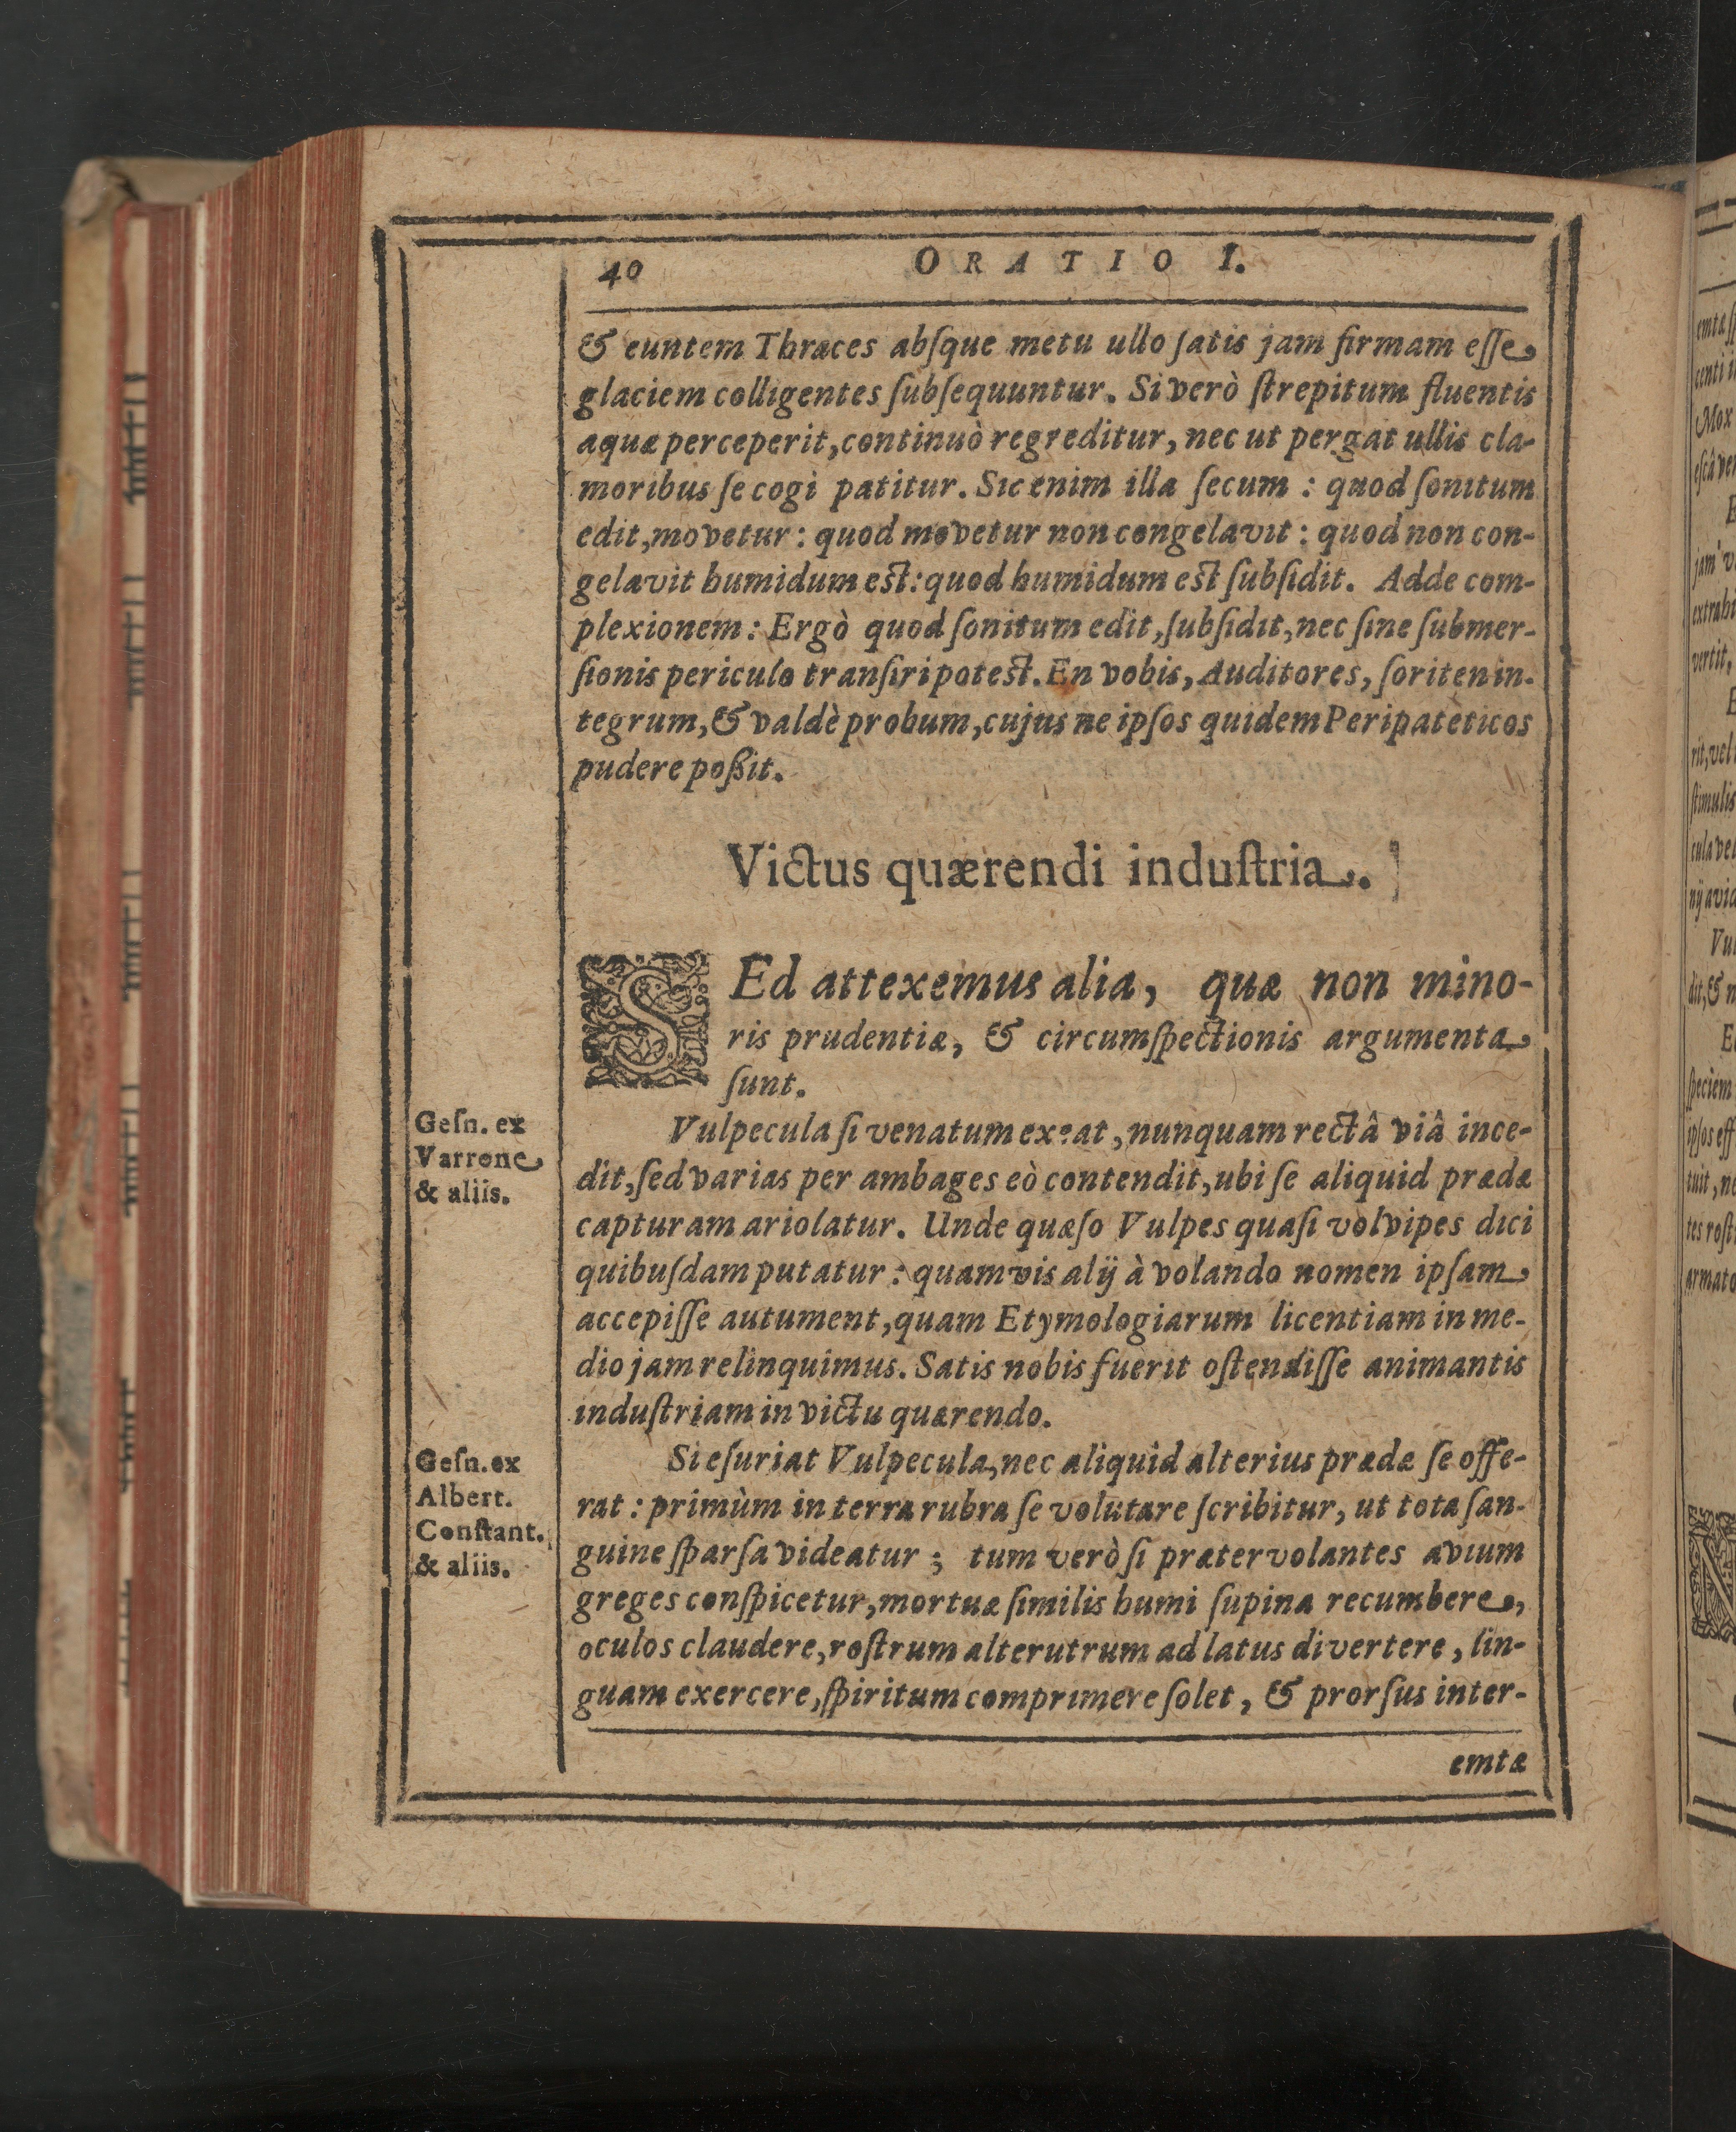 40 ORATIO I.
& euntem Thraces abſque metu ullo ſatis jam firmam eſſe
glaciem colligentes ſubſequuntur. Si verò ſtrepitum fluentis
aquæ perceperit, continuò regreditur, nec ut pergat ullis cla-
moribus ſe cogi patitur. Sic enim illa ſecum : quod ſonitum
edit, movetur : quod movetur non congelavit : quod non con-
gelavit humidum eſt : quod humidum eſt ſubſidit. Adde com-
plexionem : Ergò quod ſonitum edit, ſubſidit, nec ſine ſubmer-
ſionis periculo tranſiri poteſt. En vobis, Auditores, ſoriten in-
tegrum, & valdè probum, cujus ne ipſos quidem Peripateticos
pudere poßit.
Victus quærendi induſtria.
SEd attexemus alia, quæ non mino-
ris prudentiæ, & circumſpectionis argumenta
ſunt.
Geſn. ex
Varrone
& aliis.
Vulpecula ſi venatum exeat, nunquam rectâ viâ ince-
dit, ſed varias per ambages eò contendit, ubi ſe aliquid prædæ
capturam ariolatur. Unde quæſo Vulpes quaſi volvipes dici
quibuſdam putatur : quamvis alij à volando nomen ipſam
accepiſſe autument, quam Etymologiarum licentiam in me-
dio jam relinquimus. Satis nobis fuerit oſtendiſſe animantis
induſtriam in victu quærendo.
Geſn. ex
Albert.
Conſtant.
& aliis.
Si eſuriat Vulpecula, nec aliquid alterius prædæ ſe offe-
rat : primùm in terra rubra ſe volutare ſcribitur, ut tota ſan-
guine ſparſa videatur ; tum verò ſi prætervolantes avium
greges conſpicetur, mortuæ ſimilis humi ſupina recumbere,
oculos claudere, roſtrum alterutrum ad latus divertere, lin-
guam exercere, ſpiritum comprimere ſolet, & prorſus inter-
emtæ